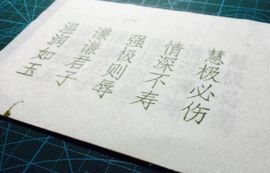 慧极必伤
情深不寿
强极则辱
谦谦君子
温润如玉